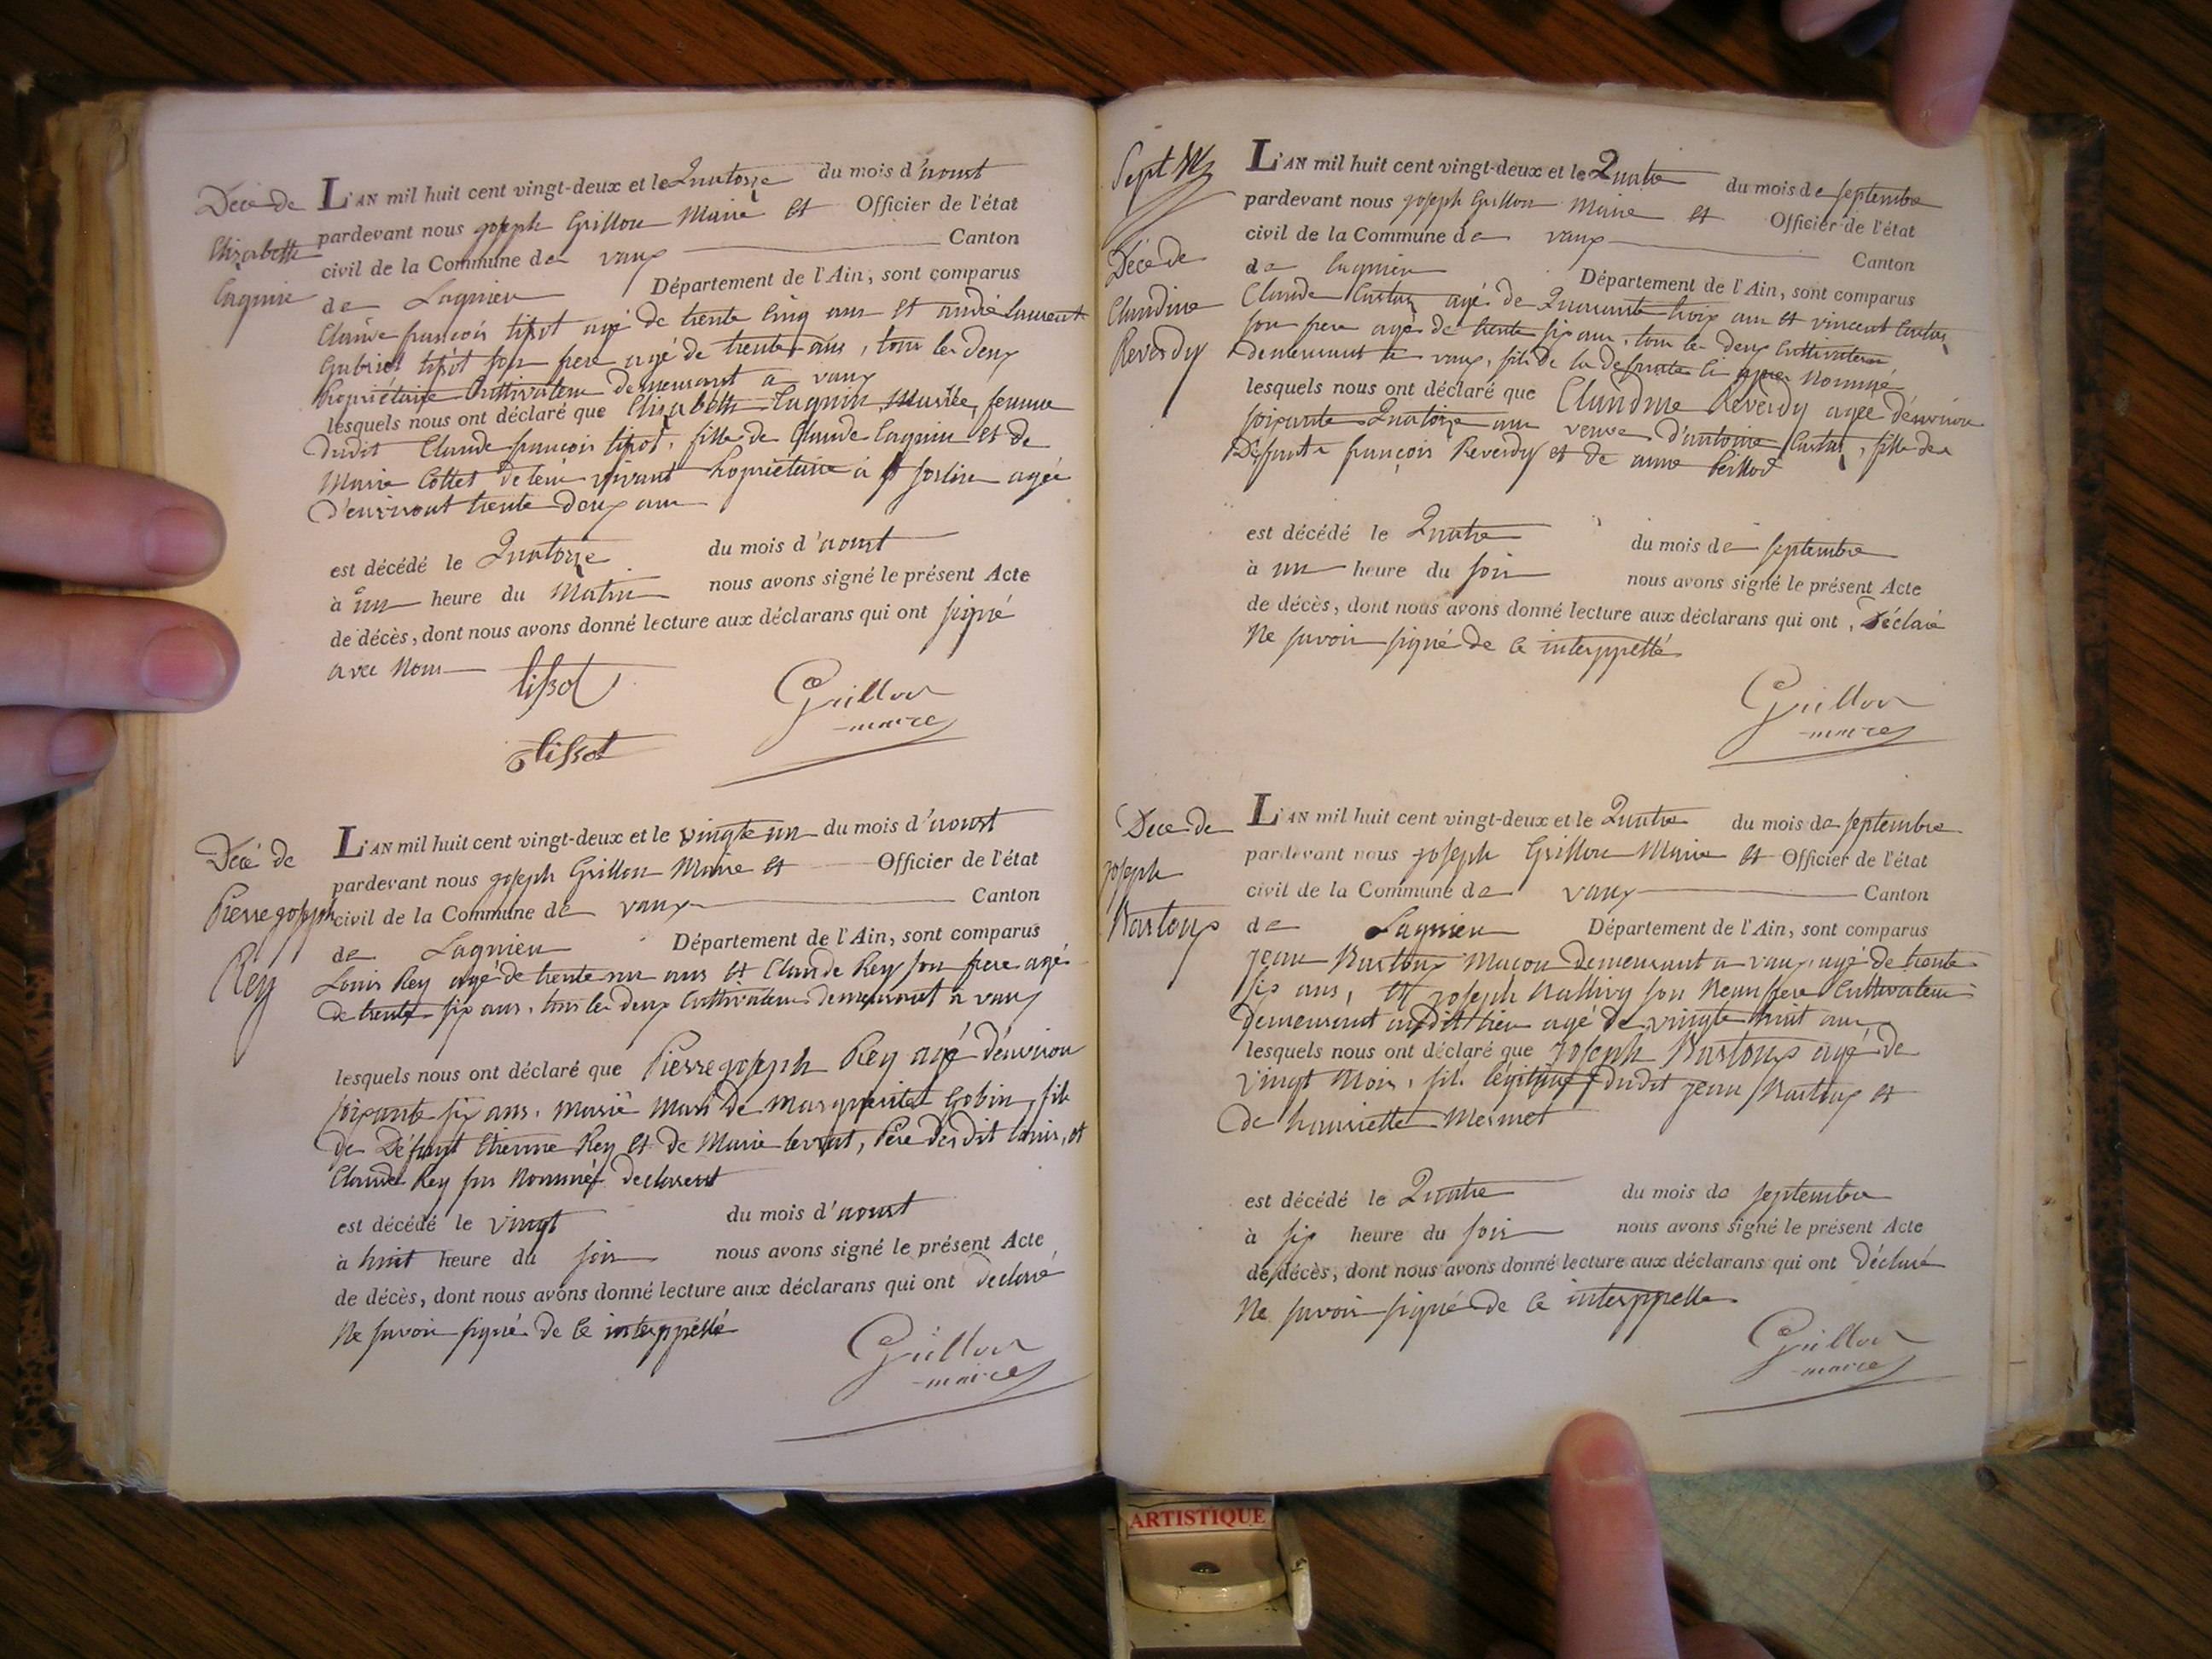 Décé de
Elisabeth
Lagnin
L'AN mil huit cent vingt-deux et le Quatorze du mois d'aoust
pardevant nous joseph Grillon Maire et Officier de l'état
civil de la Commune de vaux Canton
de Lagnieu Département de l'Ain, sont comparus
Claude françois tisot agé de trente cinq ans et andré laurent
Gabriel tisot son frere agé de trente ans, tous les deux
Propriétaire Cultivateur demeurant a vaux
lesquels nous ont déclaré que Elisabeth Lagnin Mariée, femme
dudit Claude françois tisot, fille de Claude lagnin et de
Marie Cottet de leur vivant Propriétaire à st sorlin agée
d'environt trente deux ans
est décédé le Quatorze du mois d'aoust
à un heure du Matin nous avons signé le présent Acte
de décès, dont nous avons donné lecture aux déclarans qui ont signé
avec nous
tissot
Grillon
maire
tissot
Décé de
Pierre joseph
Rey
L'AN mil huit cent vingt-deux et le vingte un du mois d'aoust
pardevant nous joseph Grillon Maire et Officier de l'état
civil de la Commune de vaux Canton
de Lagnieu Département de l'Ain, sont comparus
Louis Rey agé de trente un ans et Claude Rey son frere agé
de trente six ans, tous les deux Cultivateur demeurant a vaux
lesquels nous ont déclaré que Pierre joseph Rey agé d'environ
soixante six ans, marié Mari de marguerite Gobin, fils
de Défunt Etienne Rey et de Marie levrat, Pére desdit louis, et
Claude Rey sus Nommés declarent
est décédé le vingt du mois d'aoust
à huit heure du soir nous avons signé le présent Acte
de décès, dont nous avons donné lecture aux déclarans qui ont declaré
Ne savoir signé de ce interppéllé
Grillon
maire
Sept
Décé de
Claudine
Reverdy
L'AN mil huit cent vingt-deux et le Quatre du mois de septembre
pardevant nous joseph Grillon Maire et Officier de l'état
civil de la Commune de vaux Canton
de lagnieu Département de l'Ain, sont comparus
Claude agé de Quarante trois ans et vincent
son frere agé de trente six ans, tous les deux Cultivateur
demeurant a vaux, fils de la defunte Ci apres Nommé
lesquels nous ont déclaré que Claudine Reverdy agée d'environ
soixante Quatorze ans veuve d'antoine, fille de
Défunt françois Reverdy et de anne
est décédé le Quatre du mois de septembre
à un heure du soir nous avons signé le présent Acte
de décès, dont nous avons donné lecture aux déclarans qui ont, Déclaré
Ne savoir signé de ce interppellé
Grillon
maire
Décé de
joseph
L'AN mil huit cent vingt-deux et le Quatre du mois de septembre
pardevant nous joseph Grillon Maire et Officier de l'état
civil de la Commune de vaux Canton
de Lagnieu Département de l'Ain, sont comparus
jean Maçon demeurant a vaux, agé de trente
six ans, et joseph son Beau frere Cultivateur
demeurant audit lieu agé de vingte huit ans
lesquels nous ont déclaré que joseph agé de
vingt Mois, fils légitime dudit jean et
de henriette Mermet
est décédé le Quatre du mois de septembre
à six heure du soir nous avons signé le présent Acte
de décès, dont nous avons donné lecture aux déclarans qui ont Déclaré
Ne savoir signé de ce interppellé
Grillon
maire
ARTISTIQUE